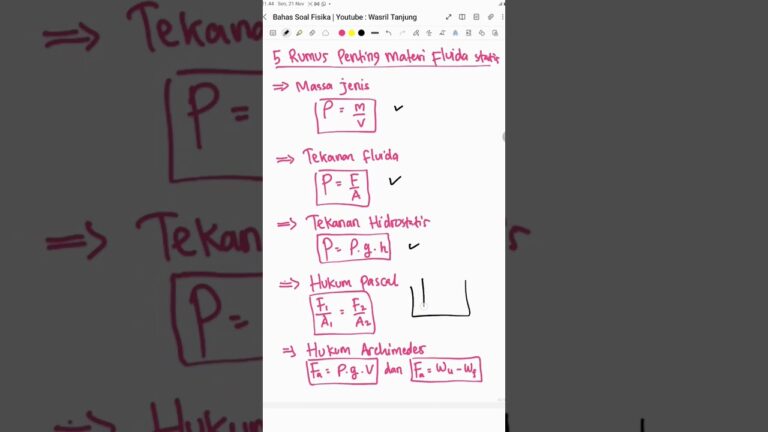 11.44 Sen, 21 Nov
Bahas Soal Fisika | Youtube : Wasril Tanjung
5 Rumus Penting Materi Fluida statis
⇒ Massa jenis
ρ = m/V
⇒ Tekanan fluida
P = F/A
⇒ Tekanan Hidrostatis
P = ρ.g.h
⇒ Hukum pascal
F₁/A₁ = F₂/A₂
⇒ Hukum Archimedes
Fa = ρ.g.V dan Fa = Wu - Wf